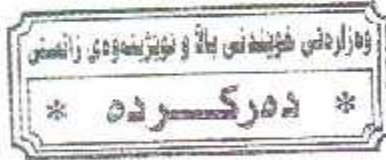 وەزارەتی خوێندنی باڵا و توێژینەوەی زانستی
* دەرکـــردە *